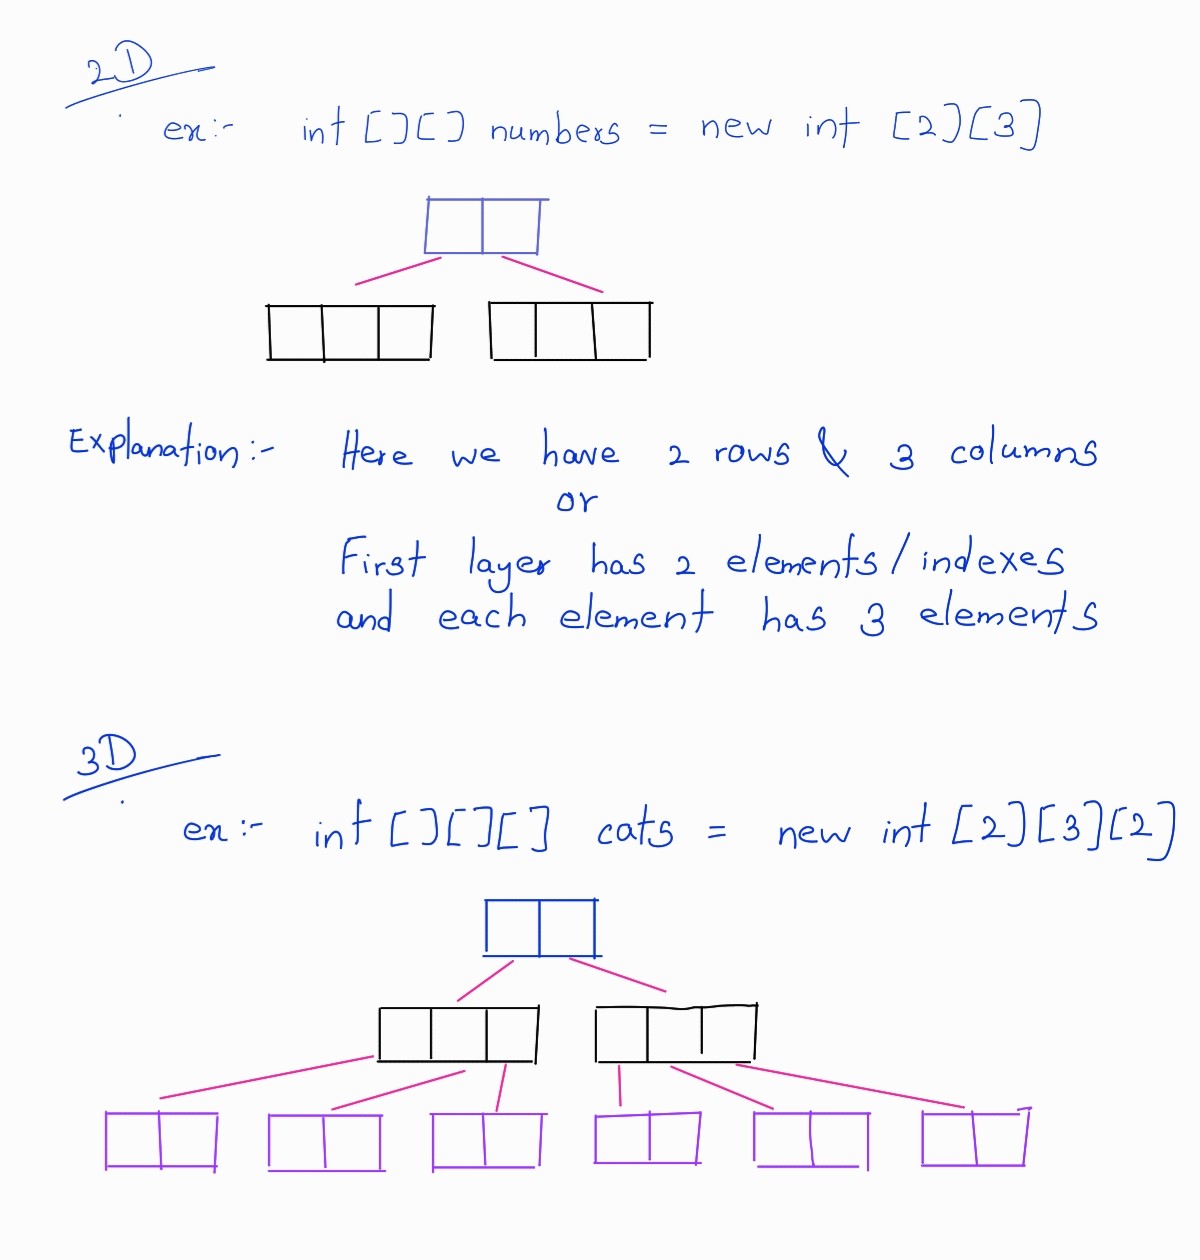 2D
ex:- int [][] numbers = new int [2][3]
Explanation:- Here we have 2 rows & 3 columns
or
First layer has 2 elements/indexes
and each element has 3 elements
3D
ex:- int [][][] cats = new int [2][3][2]